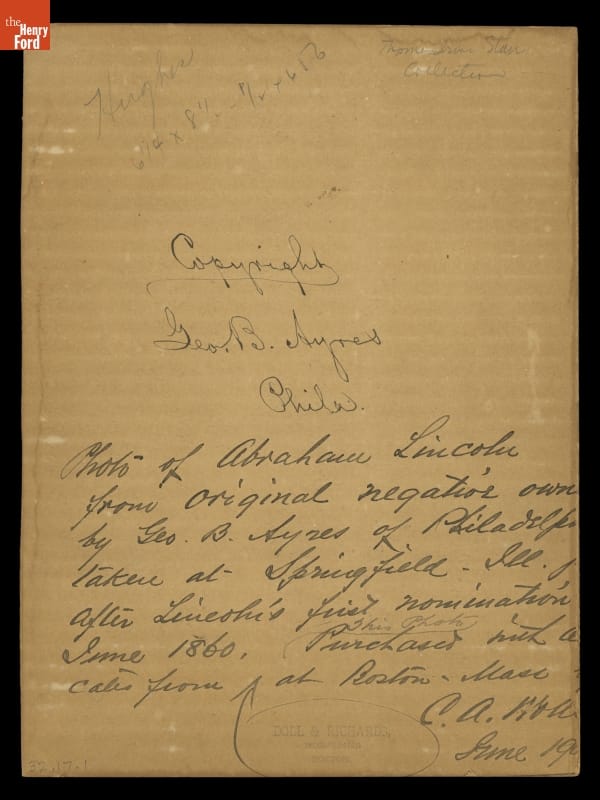 the
Henry
Ford
Hughes
Collection
Copyright
Geo. B. Ayres
Phila.
Photo of Abraham Lincoln
from original negative own
by Geo. B. Ayres of Philadelp
taken at Springfield - Ill.
after Lincoln's first nomination
June 1860. This Photo Purchased
cates from at Boston - Mass
C. A.
DOLL & RICHARDS,
BOSTON.
June 19
32.17.1